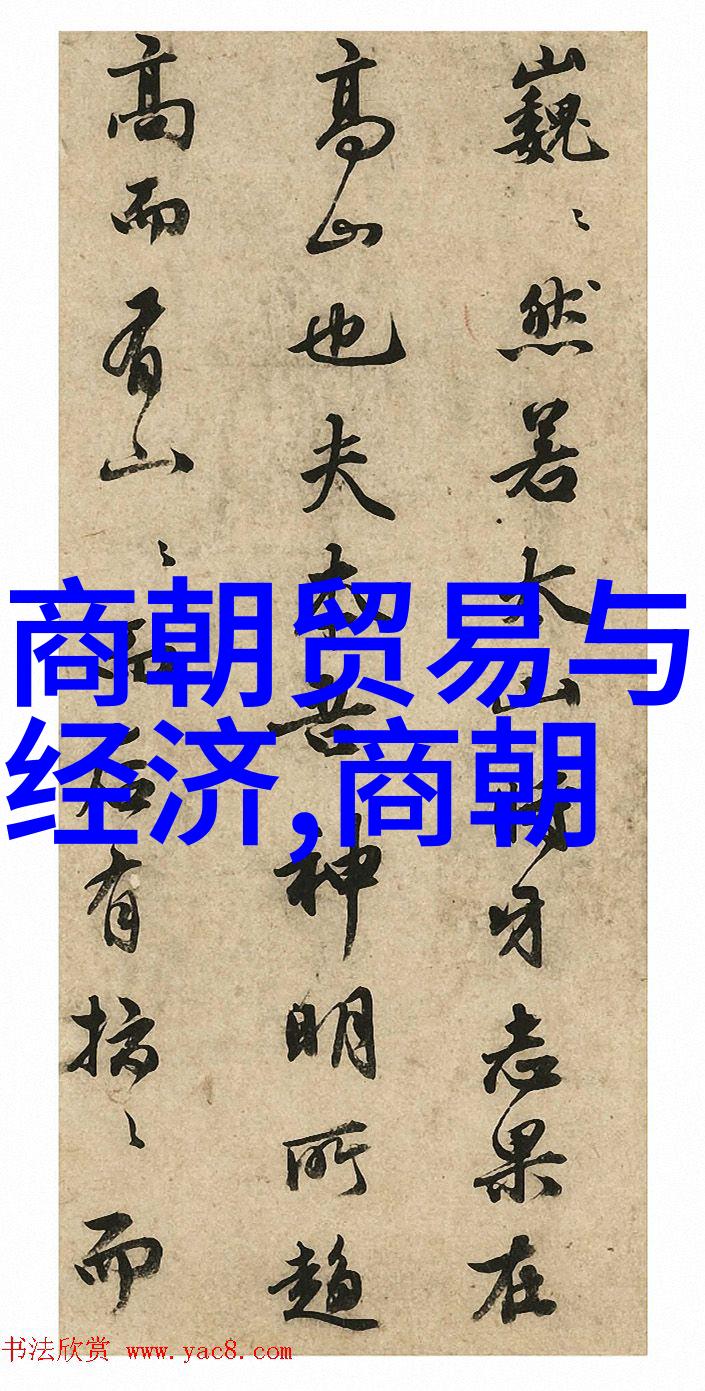 巍〻然若太山時牙志果在
高山也夫神明所趨
高而有山〻有而
商朝贸易与
经济,商朝
书法欣赏 www.yac8.com